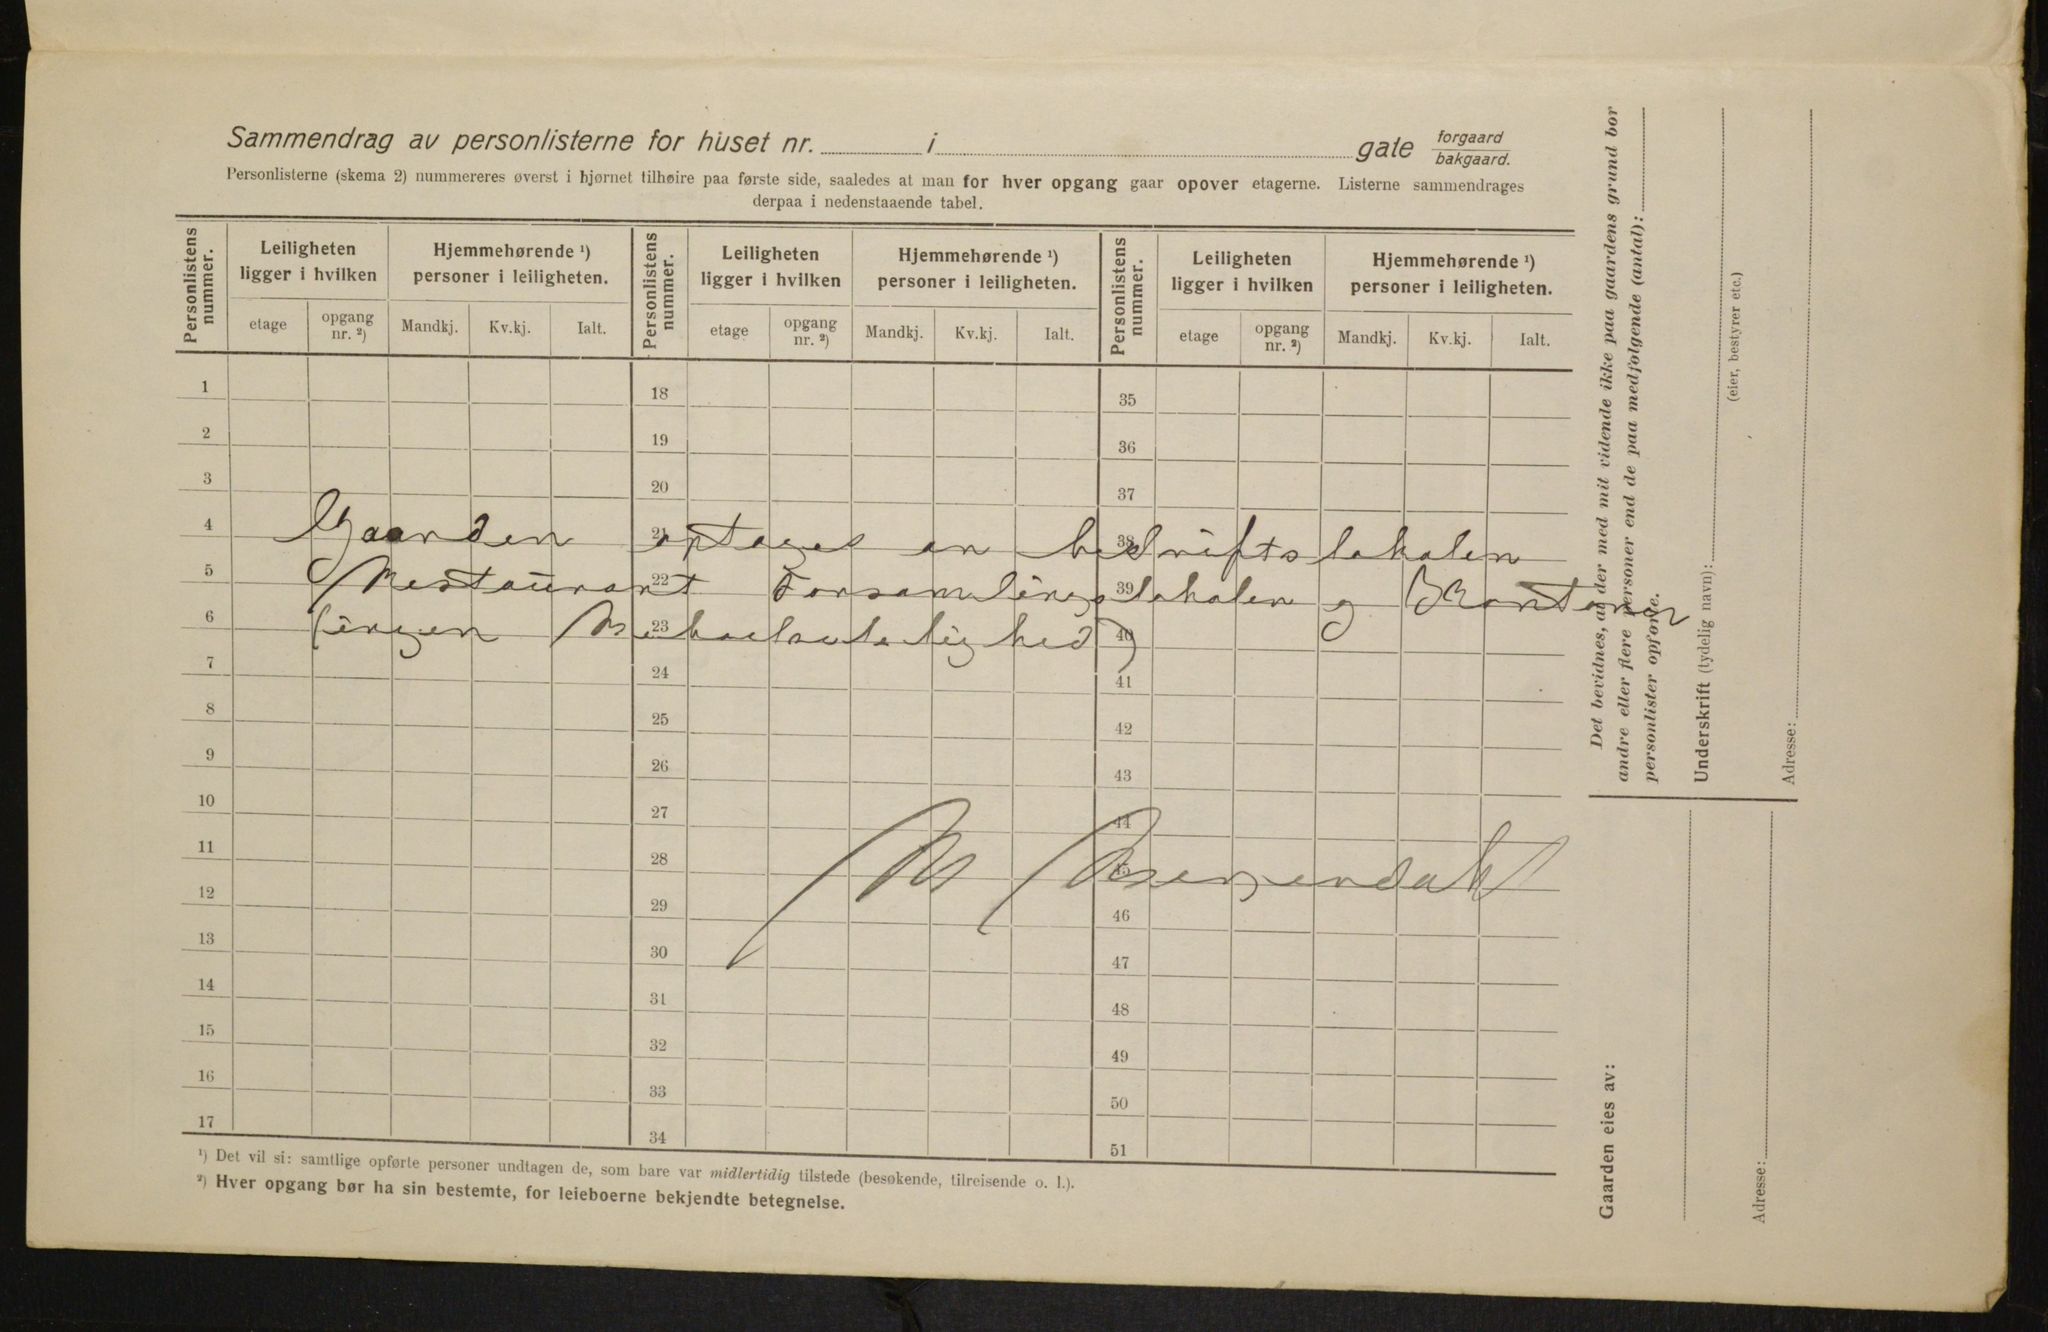 Sammendrag av personlisterne for huset nr. i gate forgaard
bakgaard.
Personlisterne (skema 2) nummereres øverst i hjørnet tilhøire paa første side, saaledes at man for hver opgang gaar opover etagerne. Listerne sammendrages
derpaa i nedenstaaende tabel.
Personlistens nummer. Leiligheten ligger i hvilken Hjemmehørende ¹) personer i leiligheten. Personlistens nummer. Leiligheten ligger i hvilken Hjemmehørende ¹) personer i leiligheten. Personlistens nummer. Leiligheten ligger i hvilken Hjemmehørende ¹) personer i leiligheten.
etage opgang nr. ²) Mandkj. Kv.kj. Ialt. etage opgang nr. ²) Mandkj. Kv.kj. Ialt. etage opgang nr. ²) Mandkj. Kv.kj. Ialt.
1 18 35
2 19 36
3 20 37
4 21 38
Gaarden optages en bedriftslokalen
5 22 39
Restaurant Forsamlingslokalen og Kontorer
6 23 40
(ingen
7 24 41
8 25 42
9 26 43
10 27 44
11 28 45
12 29 46
13 30 47
14 31 48
15 32 49
16 33 50
17 34 51
¹) Det vil si: samtlige opførte personer undtagen de, som bare var midlertidig tilstede (besøkende, tilreisende o. l.).
²) Hver opgang bør ha sin bestemte, for leieboerne bekjendte betegnelse.
Det bevidnes, at der med mit vidende ikke paa gaardens grund bor
andre eller flere personer end de paa medfølgende (antal):
personlister opførte.
Underskrift (tydelig navn):
(eier, bestyrer etc.)
Adresse:
Gaarden eies av:
Adresse: